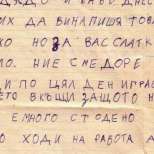 ДЯДО И БАБО ДНЕС
ИХ ДА ВИ НАПИША ТОВА
КО НО ЗА ВАС СЛАТК
ЛО. НИЕ СМЕ ДОРЕ
И ПО ЦЯЛ ДЕН ИГРАЕ
ЕТО ВКЪЩИ ЗАЩОТО Н
Е МНОГО СТУДЕНО
О ХОДИ НА РАБОТА А